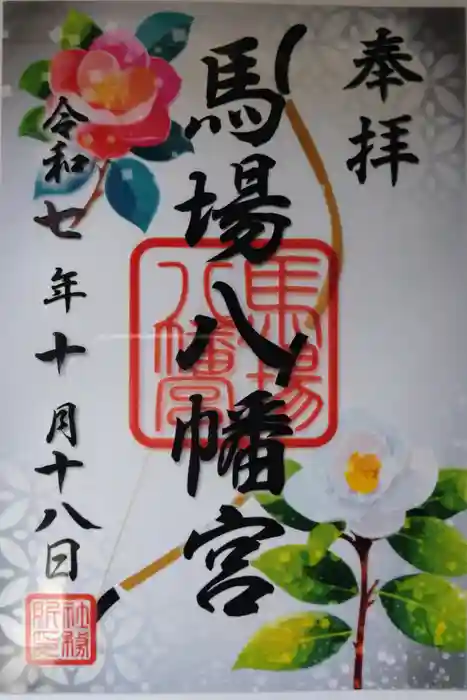 奉拝
馬場八幡宮
馬場八幡宮
令和七年十月十八日
社務所印